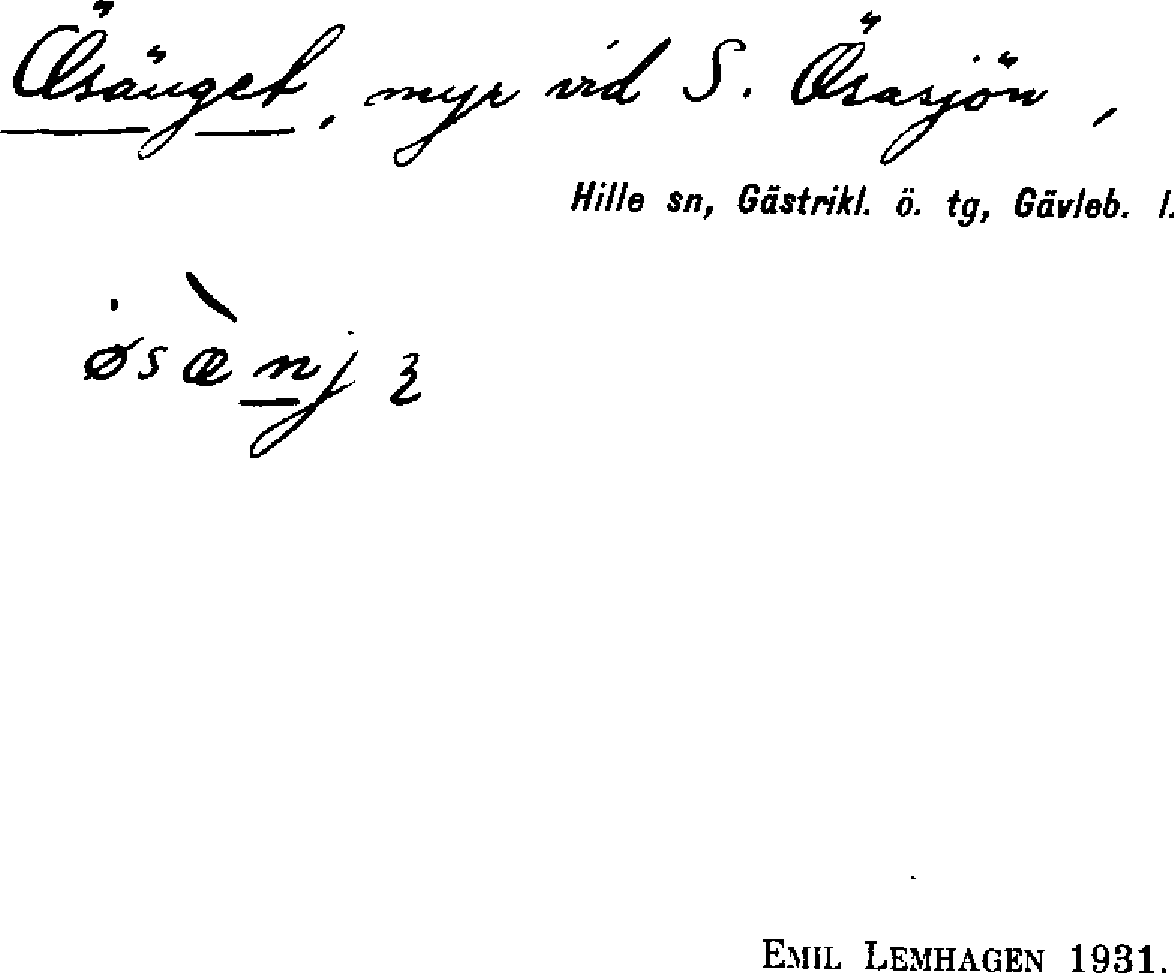 Ösänget, myr vid S. Ösasjön,
Hille sn, Gästrikl. ö. tg, Gävleb. l.
øsæ̀njꜫ
EMIL LEMHAGEN 1931.